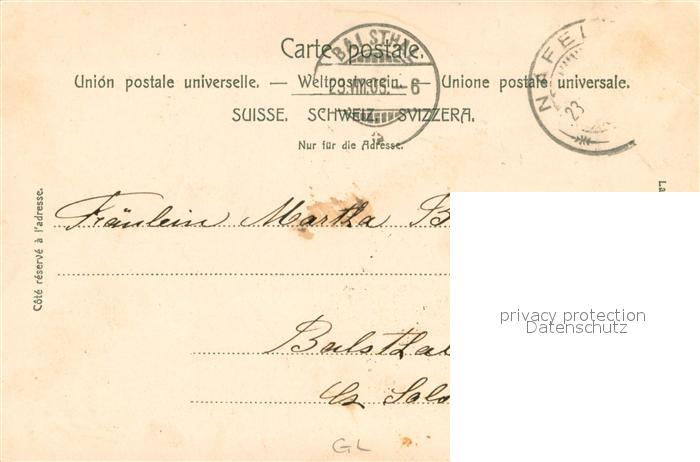 Carte postale.
BALSTHAL
23.VIII.05. - 6
NÄFEL
23
Unión postale universelle. — Weltpostverein. — Unione postale universale.
SUISSE. SCHWEIZ. SVIZZERA.
Nur für die Adresse.
Côté réservé à l'adresse.
La
Fräulein Martha B
privacy protection
Datenschutz
Balsthal
Ct Solo
GL